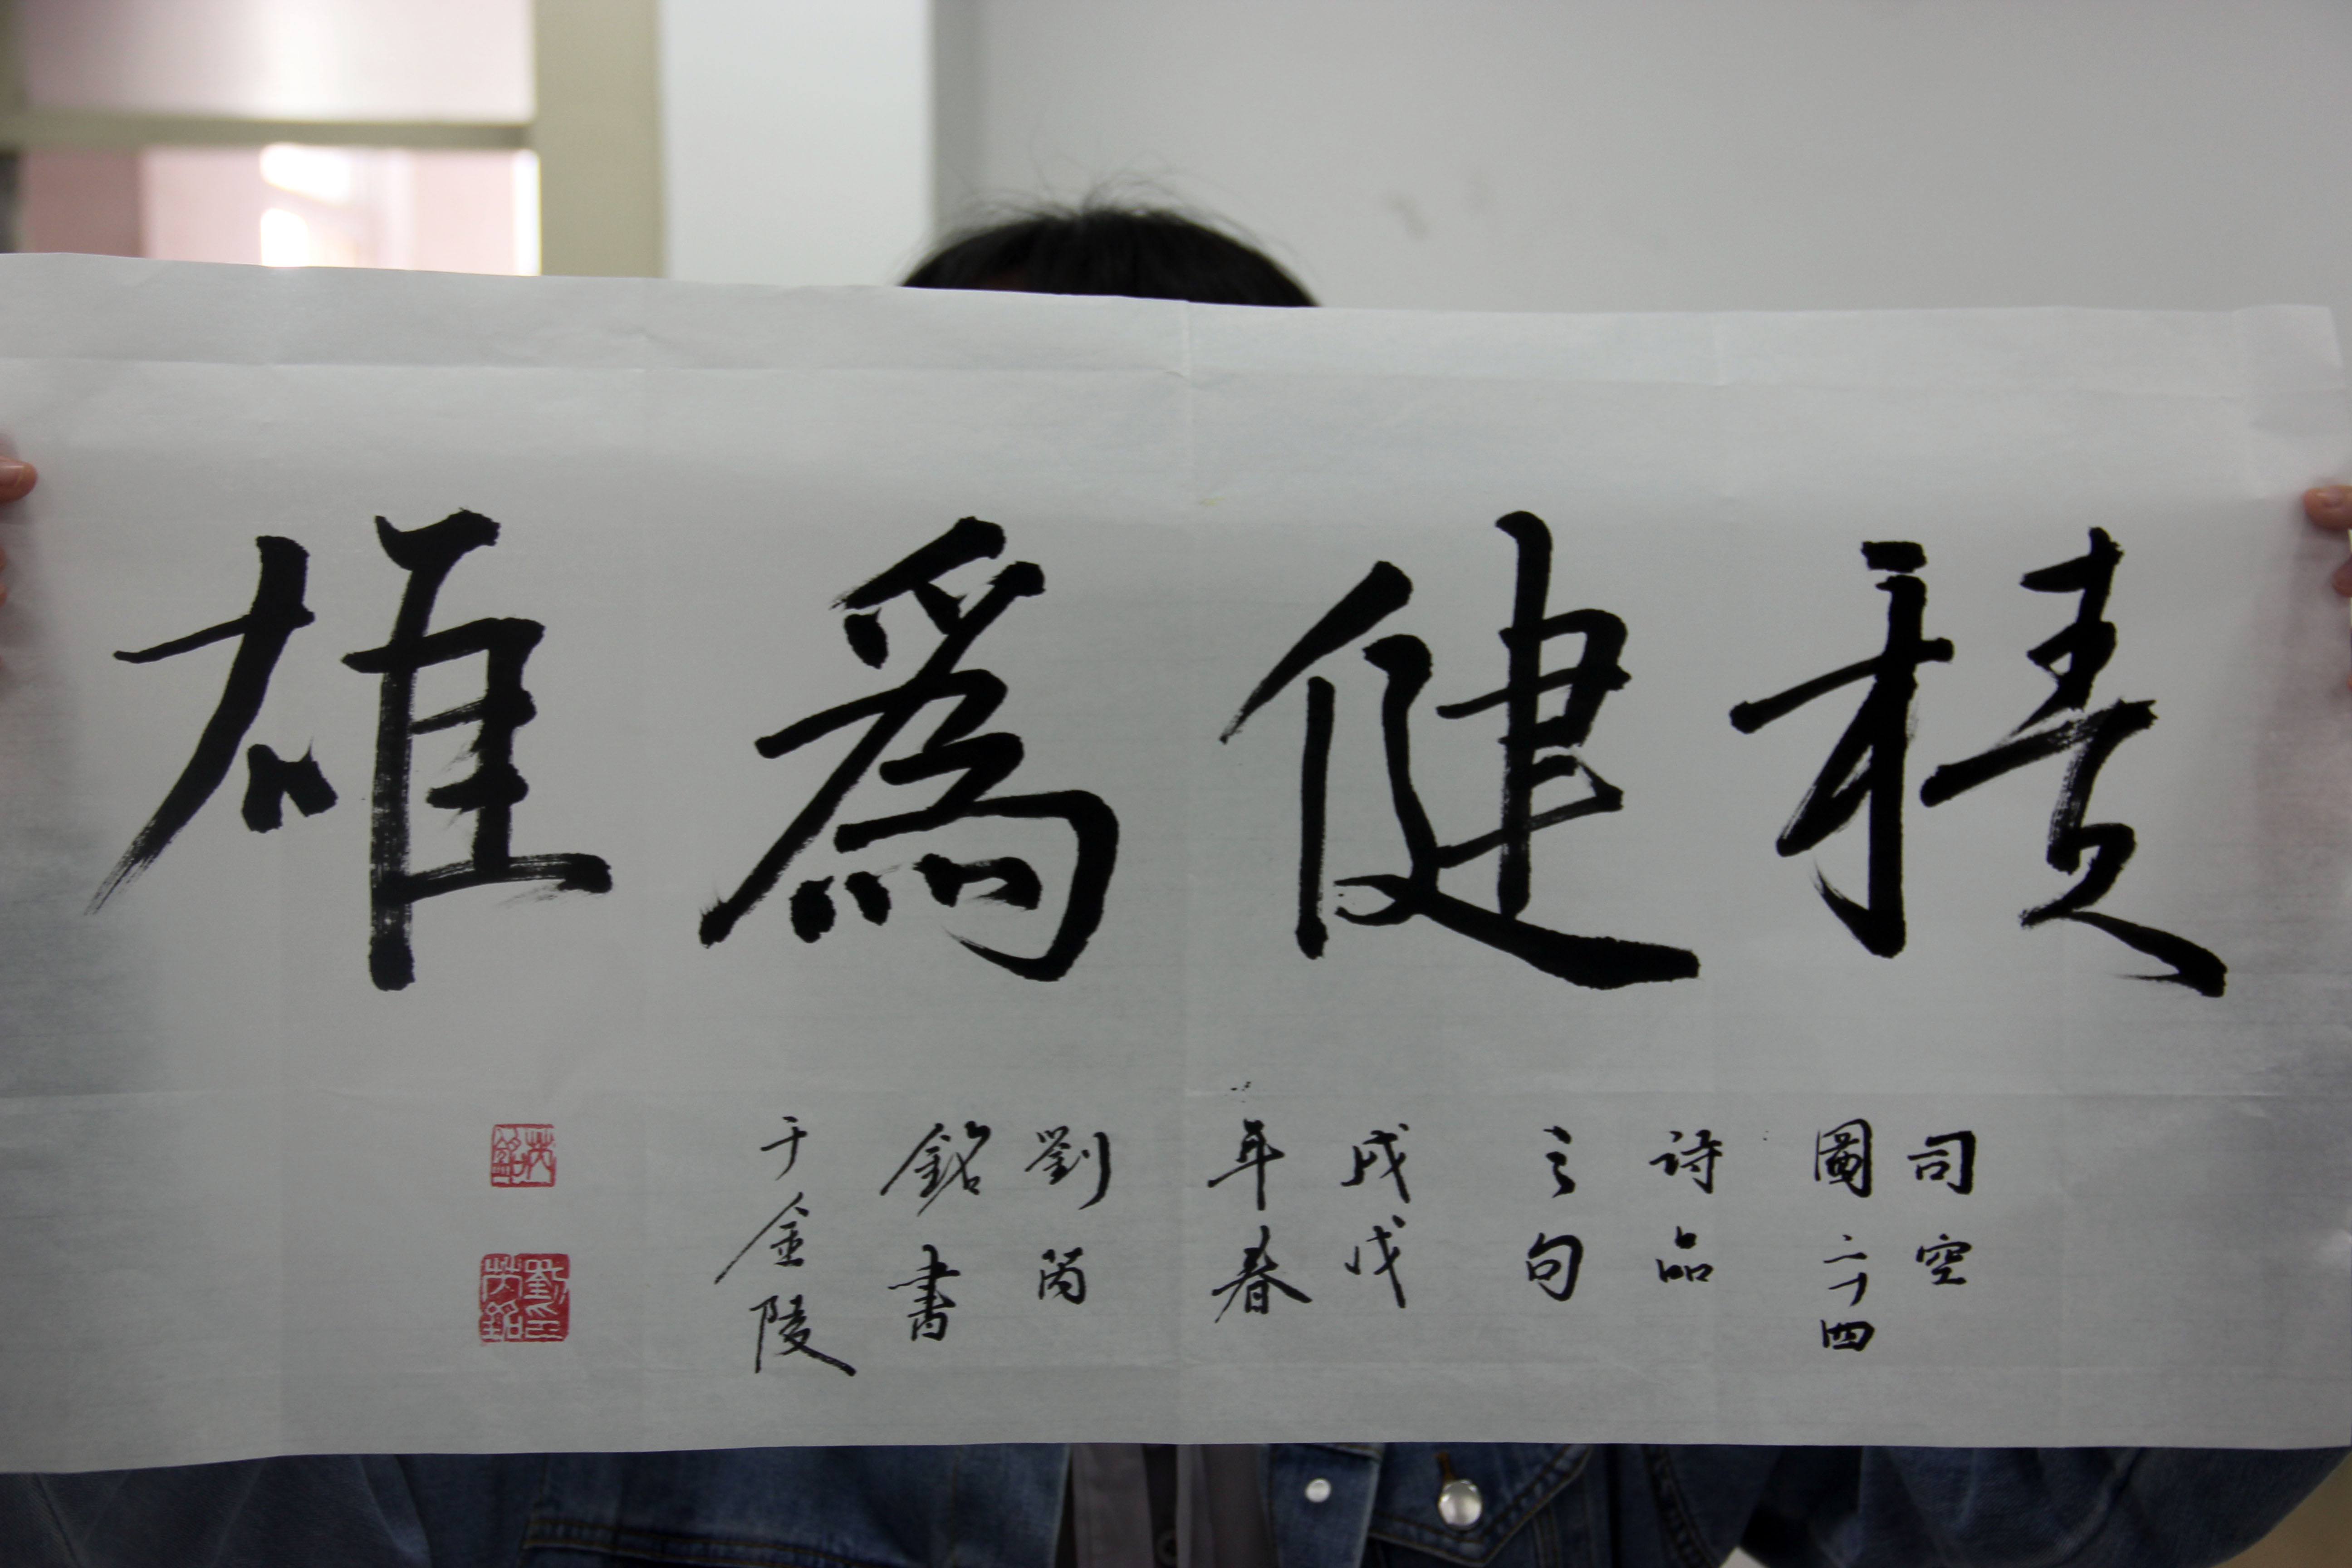 積健爲雄
司空
圖二十四
詩品
之句
戌戊
年春
劉芮
銘書
于金陵
芮銘
劉印芮銘